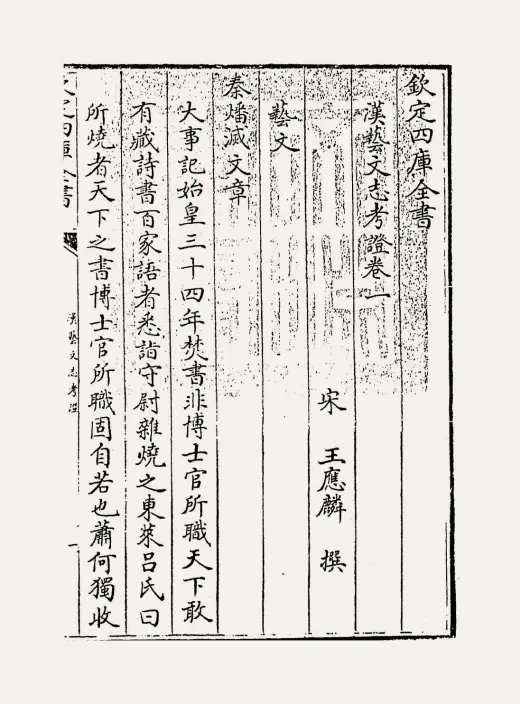 欽定四庫全書
漢藝文志考證卷一
宋 王應麟 撰
藝文
秦燔滅文章
大事記始皇三十四年焚書非博士官所職天下敢
有藏詩書百家語者悉詣守尉雜燒之東萊呂氏曰
所燒者天下之書博士官所職固自若也蕭何獨收
欽定四庫全書
漢藝文志考證
一